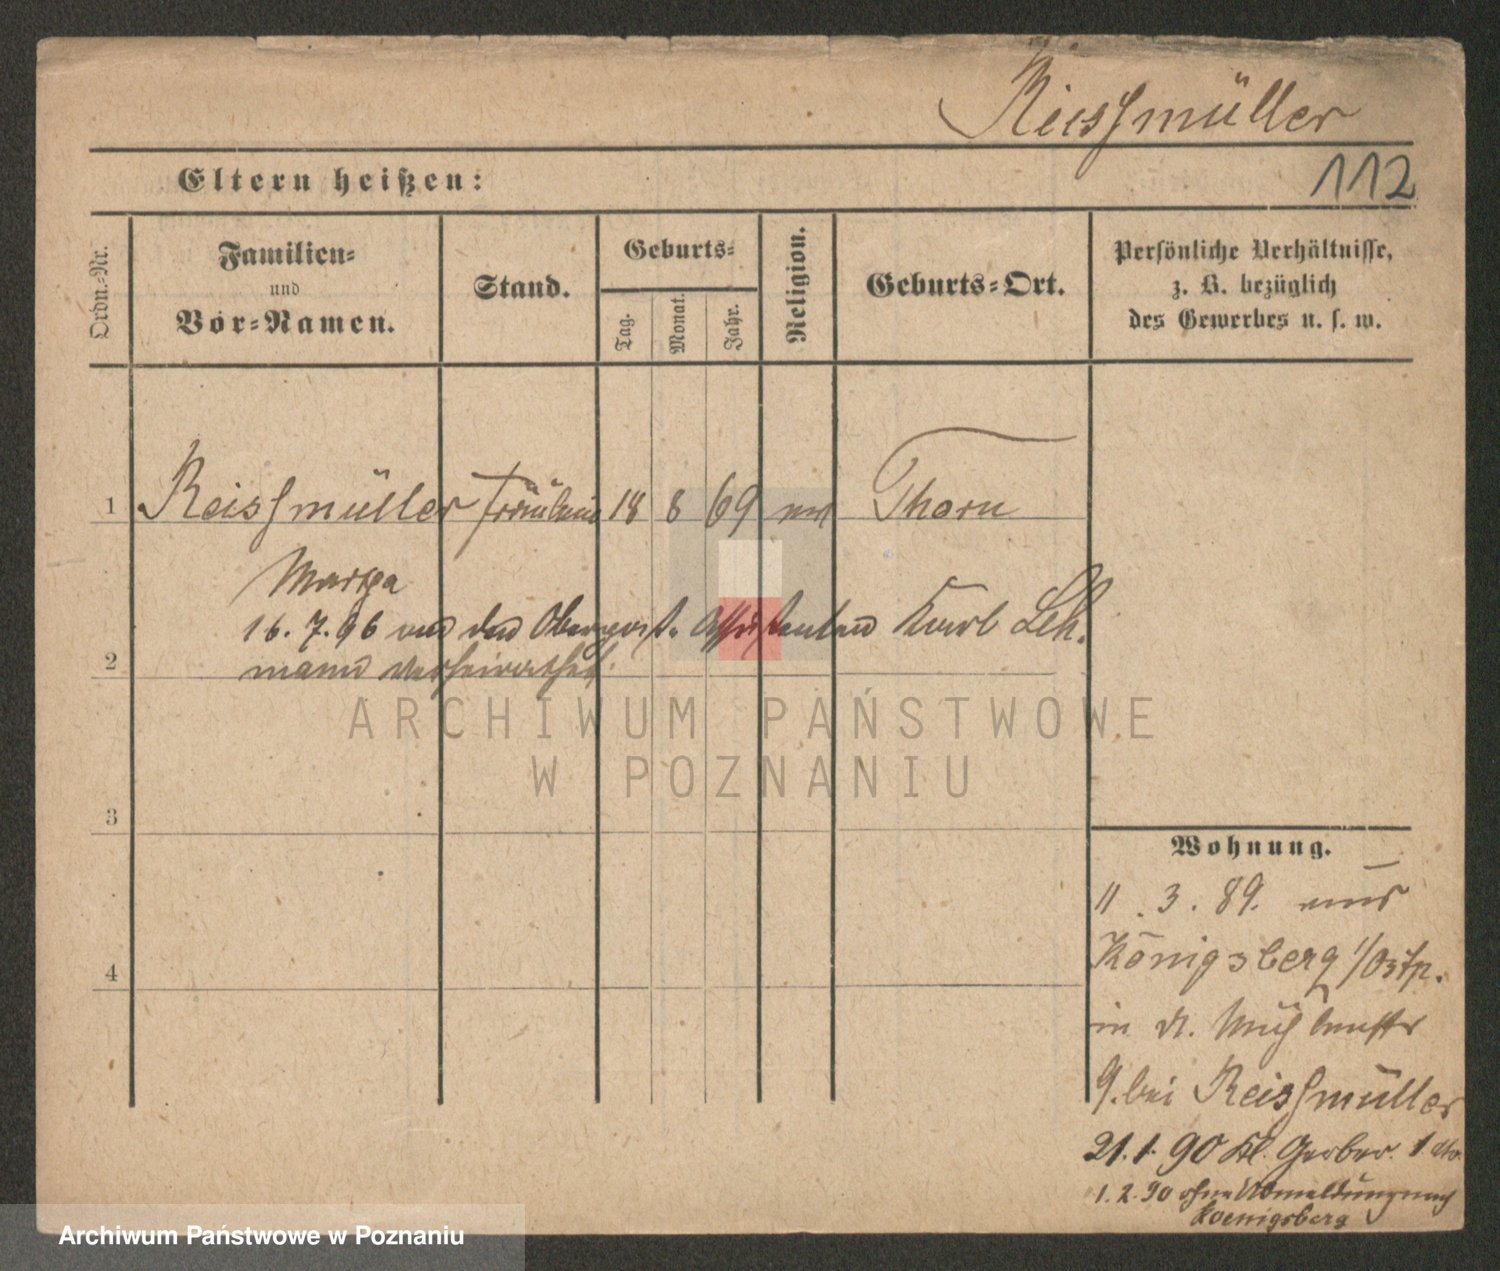 Reissmüller
112
Eltern heißen:
Ordn.-Nr.
Familien-
und
Vor-Namen.
Stand.
Geburts-
Tag.
Monat.
Jahr.
Religion.
Geburts-Ort.
Persönliche Verhältnisse,
z. B. bezüglich
des Gewerbes u. s. w.
1 Reissmüller Fräulein 18 8 69 Thorn
16. 7. 96 den Oberpost-Assistenten Karl Leh-
2 mann verheirathet
ARCHIWUM PAŃSTWOWE
W POZNANIU
3
4
Wohnung.
11. 3. 89. aus
Königsberg i/Ostp.
in kl. Mühlenstr
9. bei Reissmüller
21. 1. 90 Kl. Gerber. 1
1. 2. 90 ohne Abmeldung nach
Koenigsberg
Archiwum Państwowe w Poznaniu